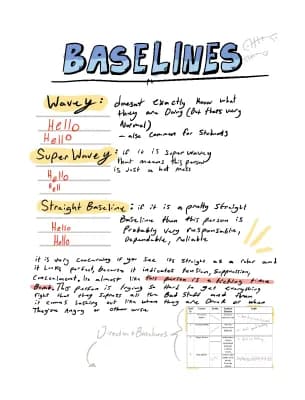 BASELINES
Wavey: doesn't exactly know what
they are Doing (But thats very
Normal)
- also Common for Students
Hello
Hello
Super Wavey: if it is Super wavey
that means this person
is Just a hot mess
Hello
Hell
Straight Baseline: if it is a pretty Straight
Baseline than this person is
Probably very responsable,
Dependable, reliable
Hello
Hello
it is very concerning if you see its straight as a ruler and
it looks perfect, because it indicates tension, suppression,
Concealment, its almost like this person is a ticking time
Bomb. This person is trying so Hard to get everything
right that they supress all the Bad Stuff and then
it comes lashing out like when they are Drunk or when
They're Angry or other wise
Direction + Baselines